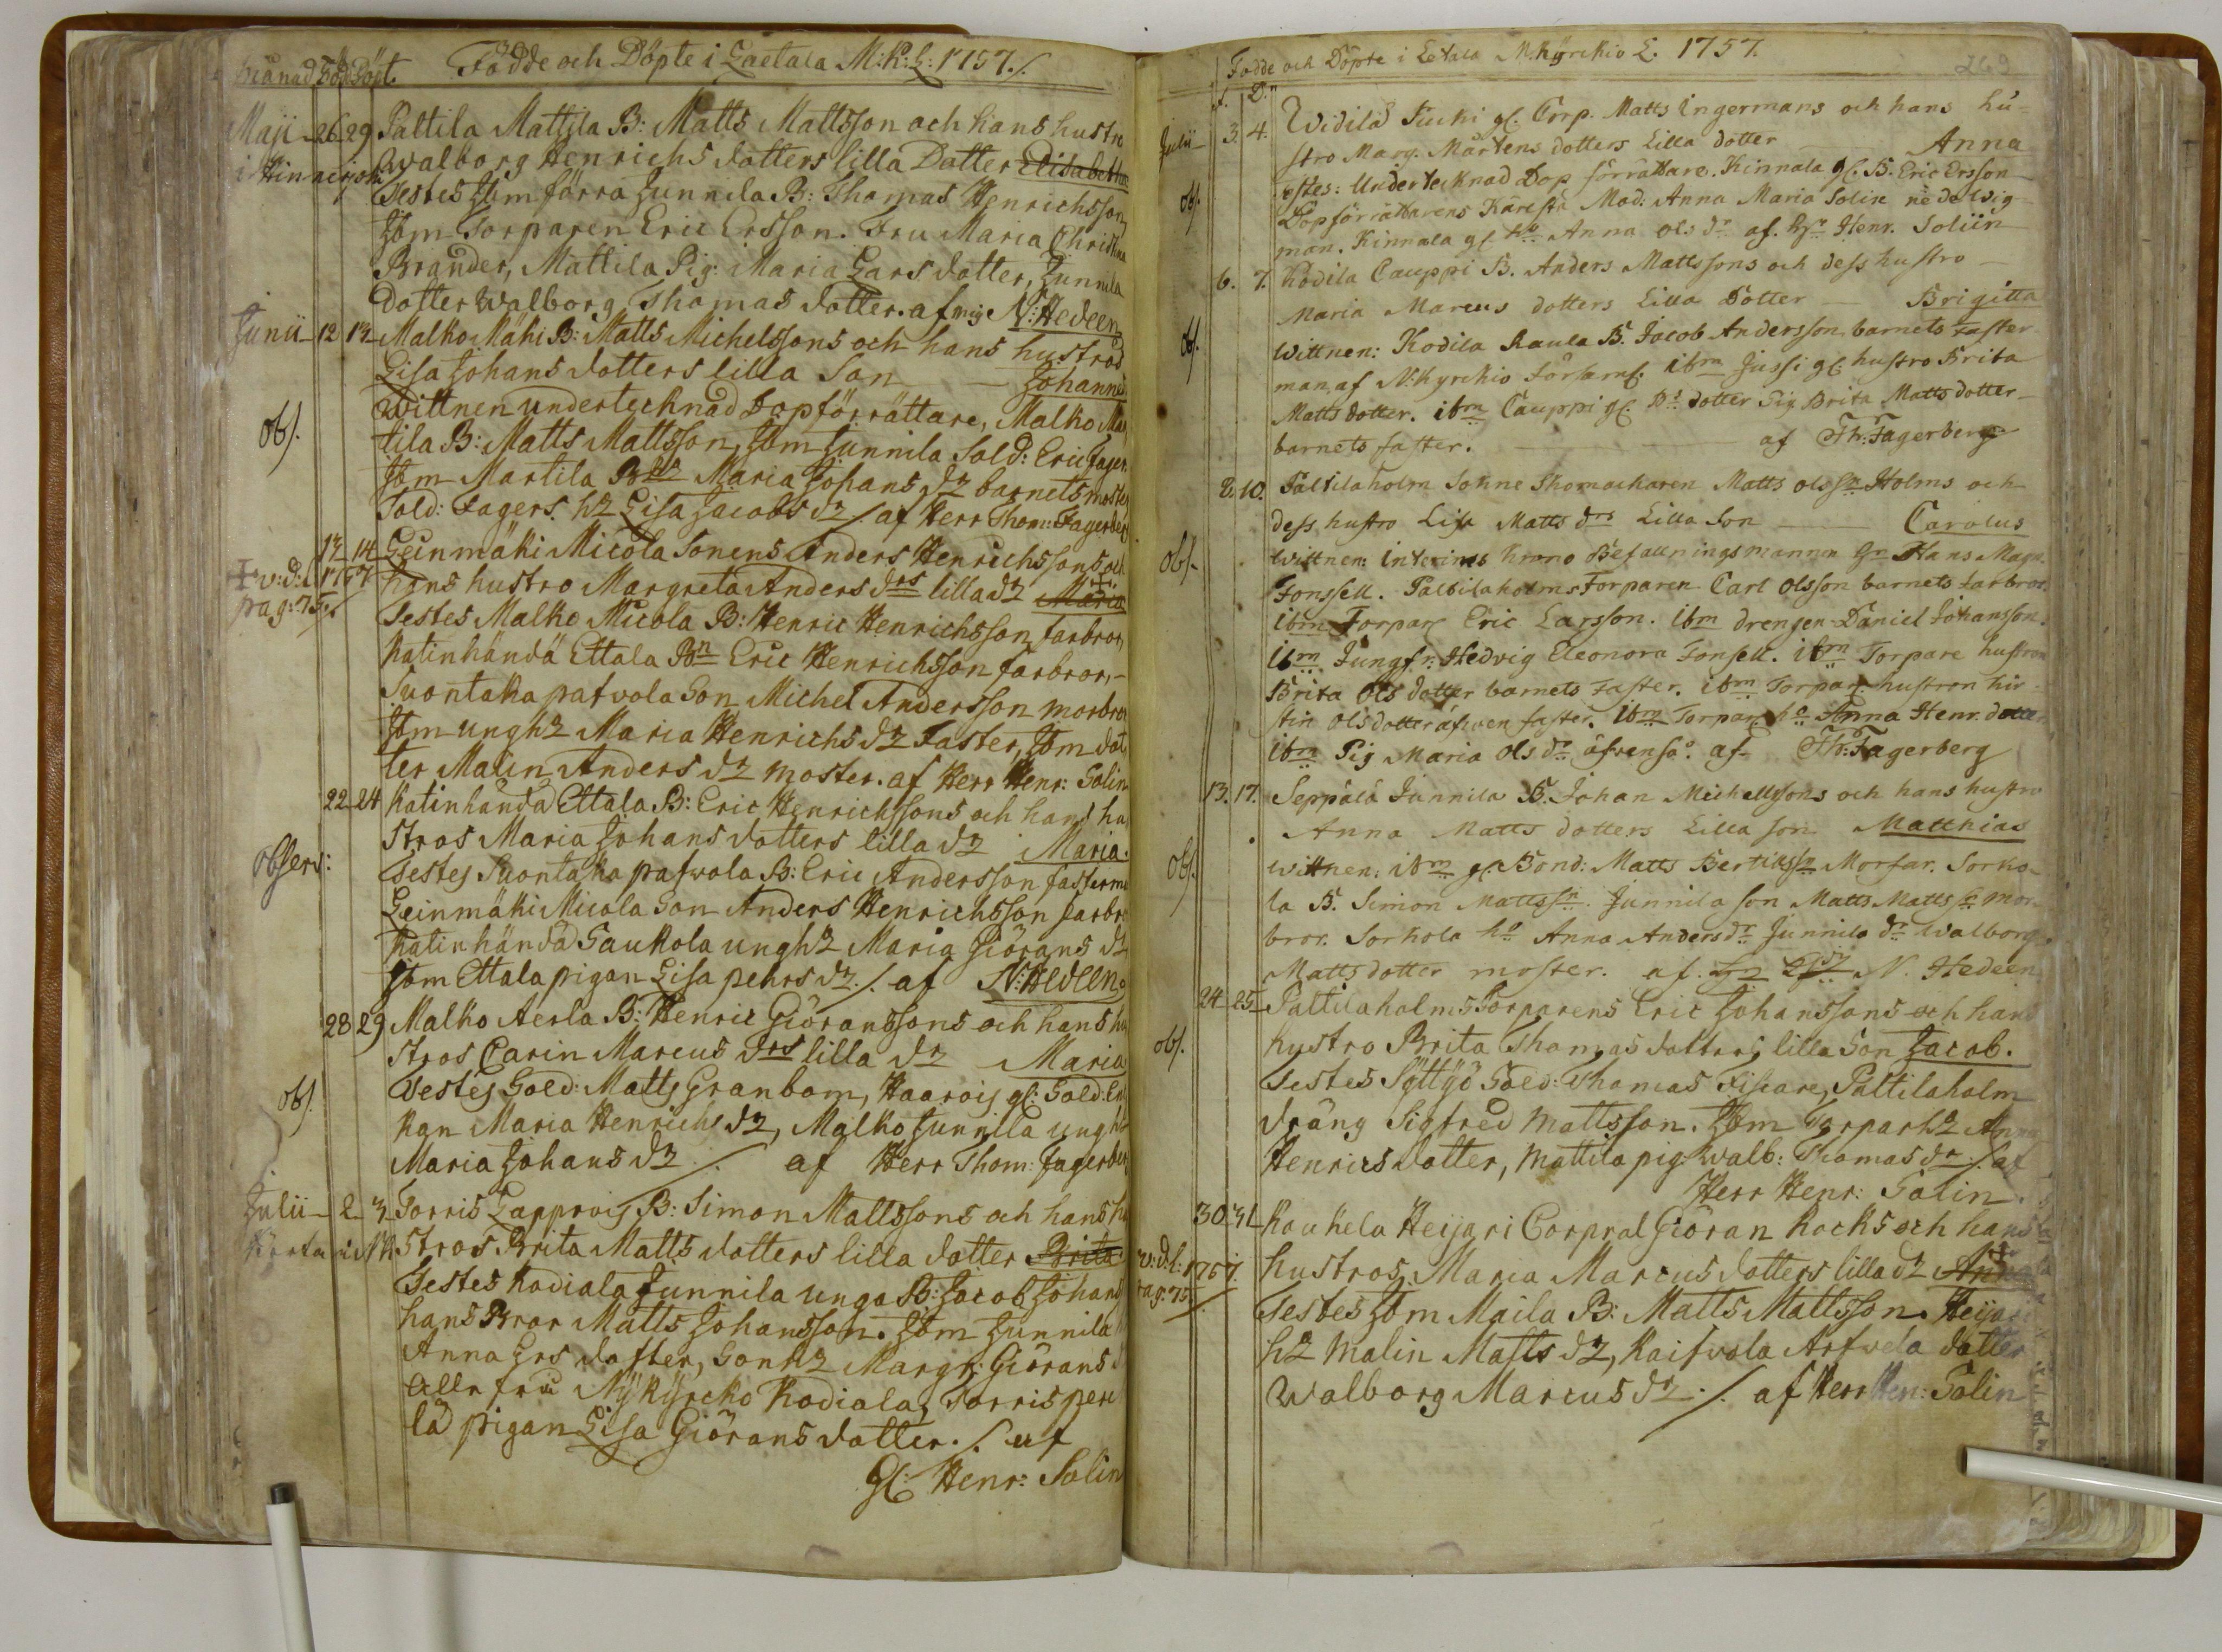 Månad Föd Döpt. Födde och Döpte i Laetala M:K:L: 1757./.
Maji 26 29 Paltila Mattila B: Matts Mattsson och hans hustro
Walborg Henrichs dotters lilla Dotter Elisabetha
Testes Ibm förra Junnila B: Thomas Henrichsson
Ibm Torparen Eric Ersson. Fru Maria Christina
Brander, Mattila Pig: Maria Lars dotter, Junnila
dotter Walborg Thomas dotter. af mig N: Hedeen
Junii 12 13 Malko Mäki B: Matts Michelssons och hans hustros
Lisa Johans dotters lilla Son Johannes
obs. Wittnen undertechnad Dopförrättare, Malko Mar
tila B: Matts Mattsson, Ibm Junnila Sold: Eric Fager.
Ibm Martila Maria Johans dr barnets moster
Sold: Fagers. hr Lisa Jacobs dr ./. af Herr Thom: Fagerberg
13 14 Leinmäki Micola Sonens Anders Henrichssons och
v:d:l 1757 hans hustro Margreta Anders drs lilla dr Maria
pag: 75. Testes Malko Micola B: Henric Henrichsson farbror,
Katinhändä Ettala Bn Eric Henrichsson farbror,
Suontaka pafvola Son Michel Andersson morbror
Ibm ungh2 Maria Henrichs dr Faster, Ibm dot
ter Malin Anders dr moster. af Herr Henr: Solin
22 24 Katinhändä Ettala B: Eric Henrichssons och hans hu
stros Maria Johans dotters lilla dr Maria.
Observ: Testes Suontaka pafvola B: Eric Andersson fasterm
Leinmäki Micola Son Anders Henrichsson farbr
Katinhändä Saukola ungh2 Maria Giörans dr
Ibm Ettala pigan Lisa pehrs dr ./. af N: Hedeen
28 29 Malko Aerla B: Henric Giöranssons och hans hu
stros Carin Marcus drs lilla dr Maria
obs. Testes Sold: Matts Granbom, Haarois gl: Sold: En
kan Maria Henrichs dr, Malko Junnila ungh2
Maria Johans dr ./. af Herr Thom: Fagerberg
Julii 2 3 Torris Lapprois B: Simon Mattssons och hans hu
stros Brita Matts dotters lilla dotter Brita
Testes Kodiala Junnila unga B: Jacob Johans
hans Bror Matts Johansson. Ibm Junnila
Anna Ers dotter, Sonh2 Margr: Giörans
alle frå Nykyrcko Kodiala, Torris per
lä pigan Lisa Giörans dotter ./. af
gl: Henr: Solin
Födde och Döpte i Letala M.kyrckio L. 1757. 269
f. D.
Julii 3. 4. Widilä Pucki gl. Corp. Matts Ingermans och hans hu-
stro Marg. Mårtens dotters Lilla dotter Anna
Testes: Undertecknad Dop förrättare. Kinnala gl. B. Eric Ersson
obs. Dopförrättarens Käresta Mad: Anna Maria Solin née de Wig-
man. Kinnala gl. ho Anna Ols dr af. Hr Henr. Soliin
6. 7. Kodila Cauppi B. Anders Mattssons och dess hustro
Maria Marcus dotters Lilla Dotter Brigitta
obs. Wittnen: Kodila Raula B. Jacob Andersson barnets faster
man, af N:kyrckio Församl. ibm Jussi gl. hustro Brita
Matts dotter. ibm Cauppi gl. Bs dotter Pig Brita Matts dotter
barnets faster. af Th: Fagerberg
8. 10. Paltilaholm Sohne Skomackaren Matts olssn Holms och
dess hustro Lisa Matts drs Lilla Son Carolus
obs. Wittnen: Interims krono Befallningsmannen Hr Hans Magn.
Fonssell. Paltilaholms Torparen Carl Olsson barnets farbror.
ibm Torpar Eric Larsson. ibm drengen Daniel Johansson.
ibm Jungfr: Hedvig Eleonora Fonsell. ibm Torpare hustron
Brita Ols dotter barnets faster. ibm Torpar hustron kir-
stin Olsdotter äfwen faster. ibm Torpar ho Anna Henr. dotter
ibm Pig Maria Ols dr äfven so. af Th: Fagerberg
13. 17. Seppälä Junnila B. Johan Michellssons och hans hustro
Anna Matts dotters Lilla son Matthias
obs. Wittnen: ibm gl. Bond: Matts Bertilssn Morfar. Sorko-
la B. Simon Mattssn. Junnila son Matts Mattssn mor-
bror. Sorkola ho Anna Anders dr Junnila dr Walborg
Matts dotter moster. af. N. Hedeen
24 25 Paltilaholms Torparens Eric Johanssons och hans
obs. hustro Brita Thomas dotters lilla Son Jacob.
Testes Syttyö Sold: Thomas Fiscare, Paltilaholm
dräng Sigfred Mattsson. Ibm Torparh2 Anna
Henrics dotter, Mattila pig: Walb: Thomas dr ./. af
Herr Henr: Solin.
30 31 Koukela Heijari Corpral Giöran Kocks och hans
v:d:l: 1757. hustros Maria Marcus dotters lilla dr
pag: 75. Testes Ibm Maila B: Matts Mattsson. Heijari
h2 Malin Matts dr, Kaifvola Arfvela dotter
Walborg Marcus dr ./. af Herr Hen: Solin